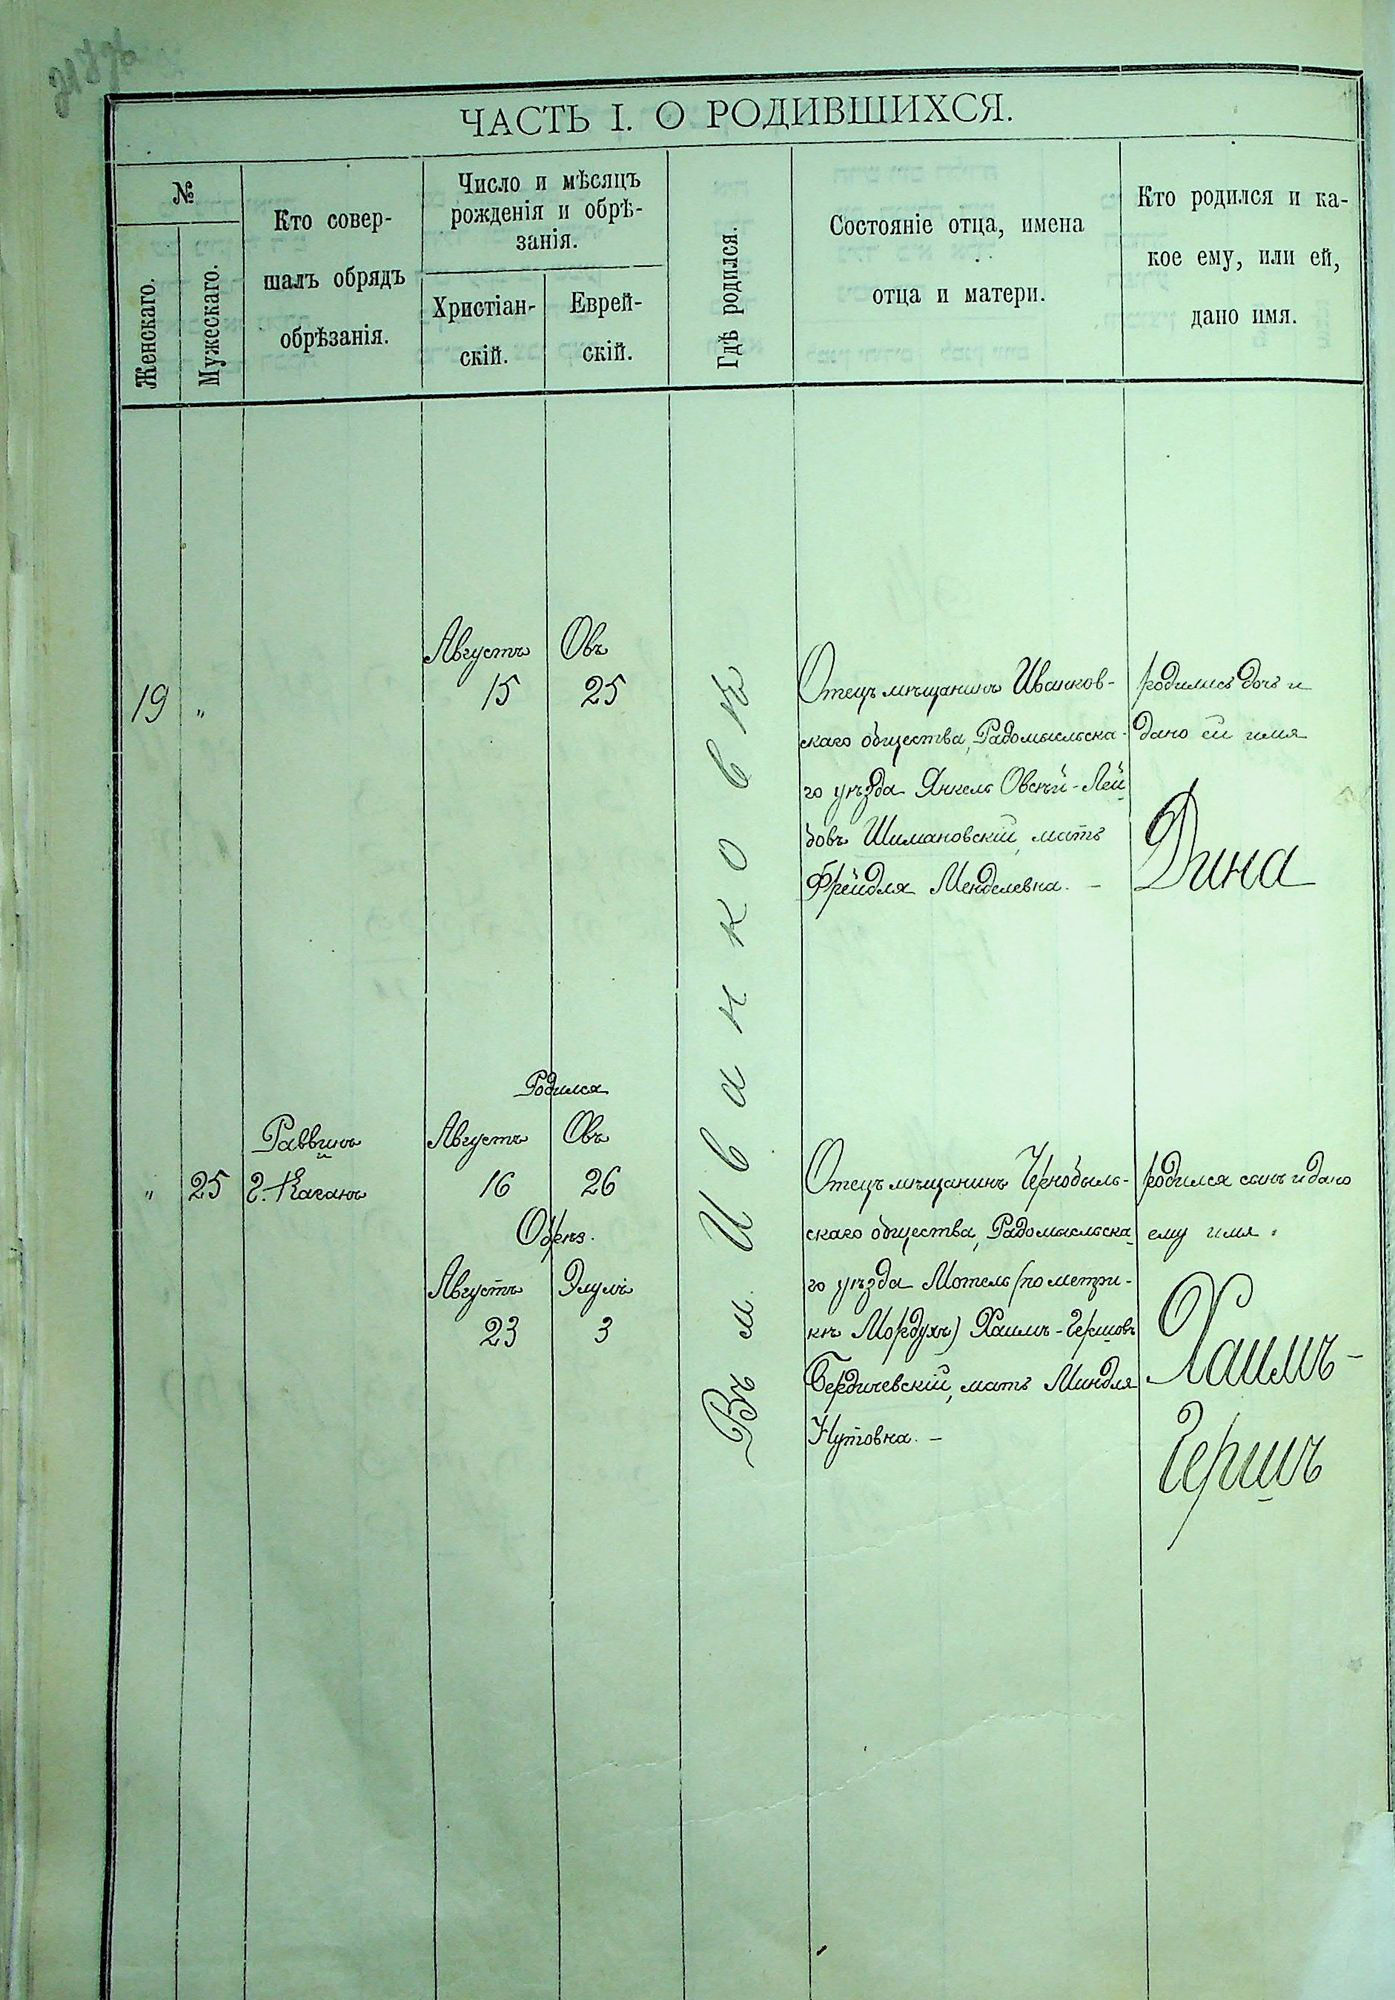 ЧАСТЬ I. О РОДИВШИХСЯ.
№
Женскаго.
Мужескаго.
Кто совер-
шалъ обрядъ
обрѣзанія.
Число и мѣсяцъ
рожденія и обрѣ-
занія.
Христіан-
скій.
Еврей-
скій.
Гдѣ родился.
Состояніе отца, имена
отца и матери.
Кто родился и ка-
кое ему, или ей,
дано имя.
Августъ Овъ
19 " 15 25
Въ м. Иванковѣ
Отецъ мѣщанинъ Иванков-
скаго общества, Радомысльска-
го уѣзда Янкель Овсѣй-Лей-
бовъ Шимановскій, мать
Фрейдля Менделевна. –
родилась дочь и
дано ей имя
Дина
Родился
Раввинъ Августъ Овъ
" 25 Г. Каганъ 16 26
Обрѣз.
Августъ Элулъ
23 3
Отецъ мѣщанинъ Чернобыль-
скаго общества, Радомысльска-
го уѣзда Мотель (по метри-
кѣ Мордухъ) Хаимъ-Гершовъ
Бердичевскій, мать Миндля
Нутовна. –
родился сынъ и дано
ему имя
Хаимъ-
Гершъ